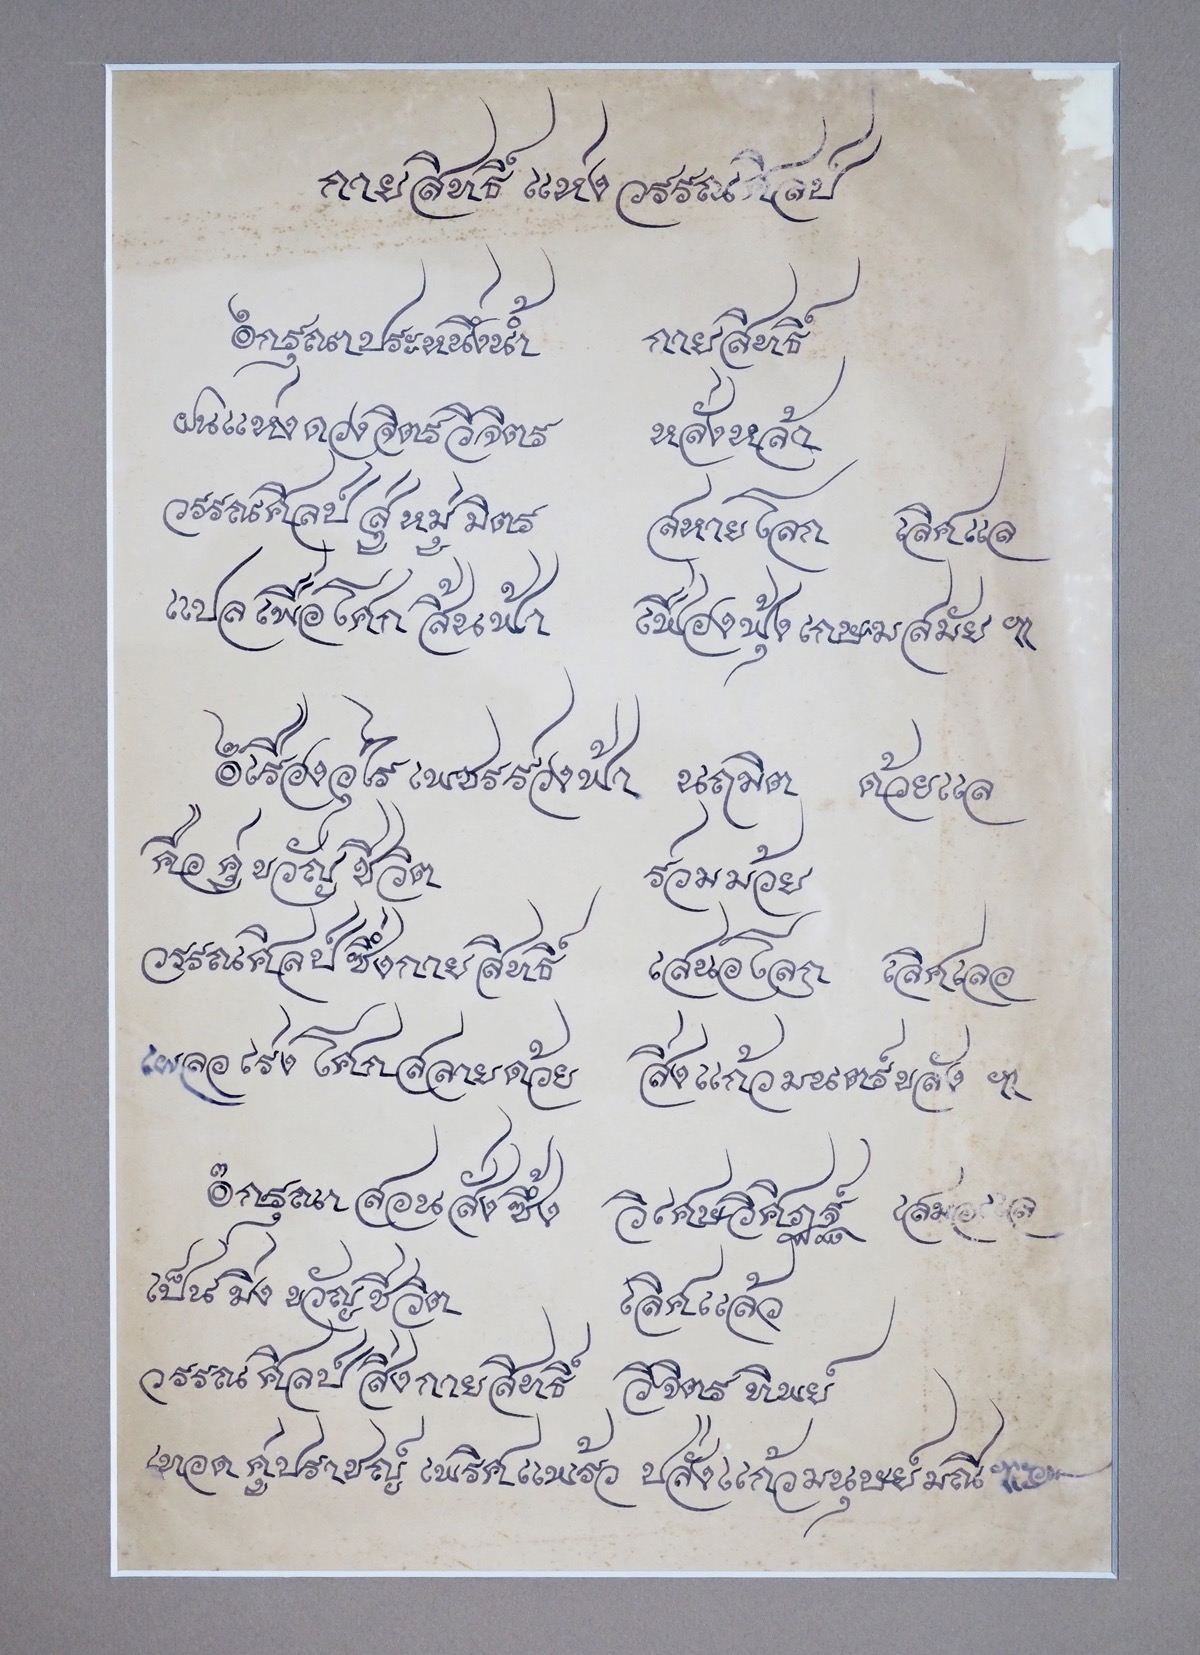 กายสิทธิ์ แห่ง วรรณศิลป์
๏ กรุณาประหนึ่งน้ำ กายสิทธิ์
ฝนแห่งดวงจิตรวิจิตร หลั่งหล้า
วรรณศิลป์ สู่ หมู่ มิตร สหายโลก เลิศแล
แปล เพื่อ โศก สิ้นฟ้า เฟื่องฟุ้ง เกษมสมัย ฯ
๏ เรืองอุไร เพชรร่วงฟ้า นฤมิต ด้วยแล
คือ คู่ ขวัญ ชีวิต ร่วมม้วย
วรรณศิลป์ ซึ่งกายสิทธิ์ เสนอโลก เลิศเลอ
เร่ง โศก สลายด้วย สิ่งแก้วมนตร์ขลัง ฯ
๏ กรุณา สอนสั่งซึ้ง วิเศษวิศิษฏ์ เสมอแล
เป็น มิ่ง ขวัญชีวิต เลิศแล้ว
วรรณศิลป์ สิ่งกายสิทธิ์ วิจิตร ทิพย์
ทอด คู่ปราชญ์ เพริศแพร้ว ปลั่งแก้วมนุษย์มณี